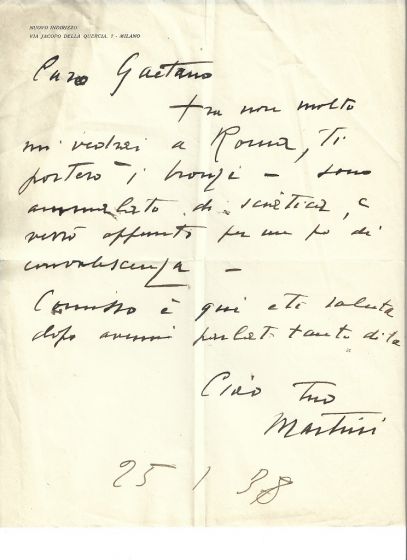 NUOVO INDIRIZZO:
VIA JACOPO DELLA QUERCIA, 7 - MILANO
Caro Gaetano
tra non molto
mi vedrai a Roma, ti
porterò i bronzi - sono
ammalato di sciatica, e
verrò appunto per un po di
convalescenza -
Comisso è qui e ti saluta
dopo avermi parlato tanto di te
Ciao tuo
Martini
25 1 38